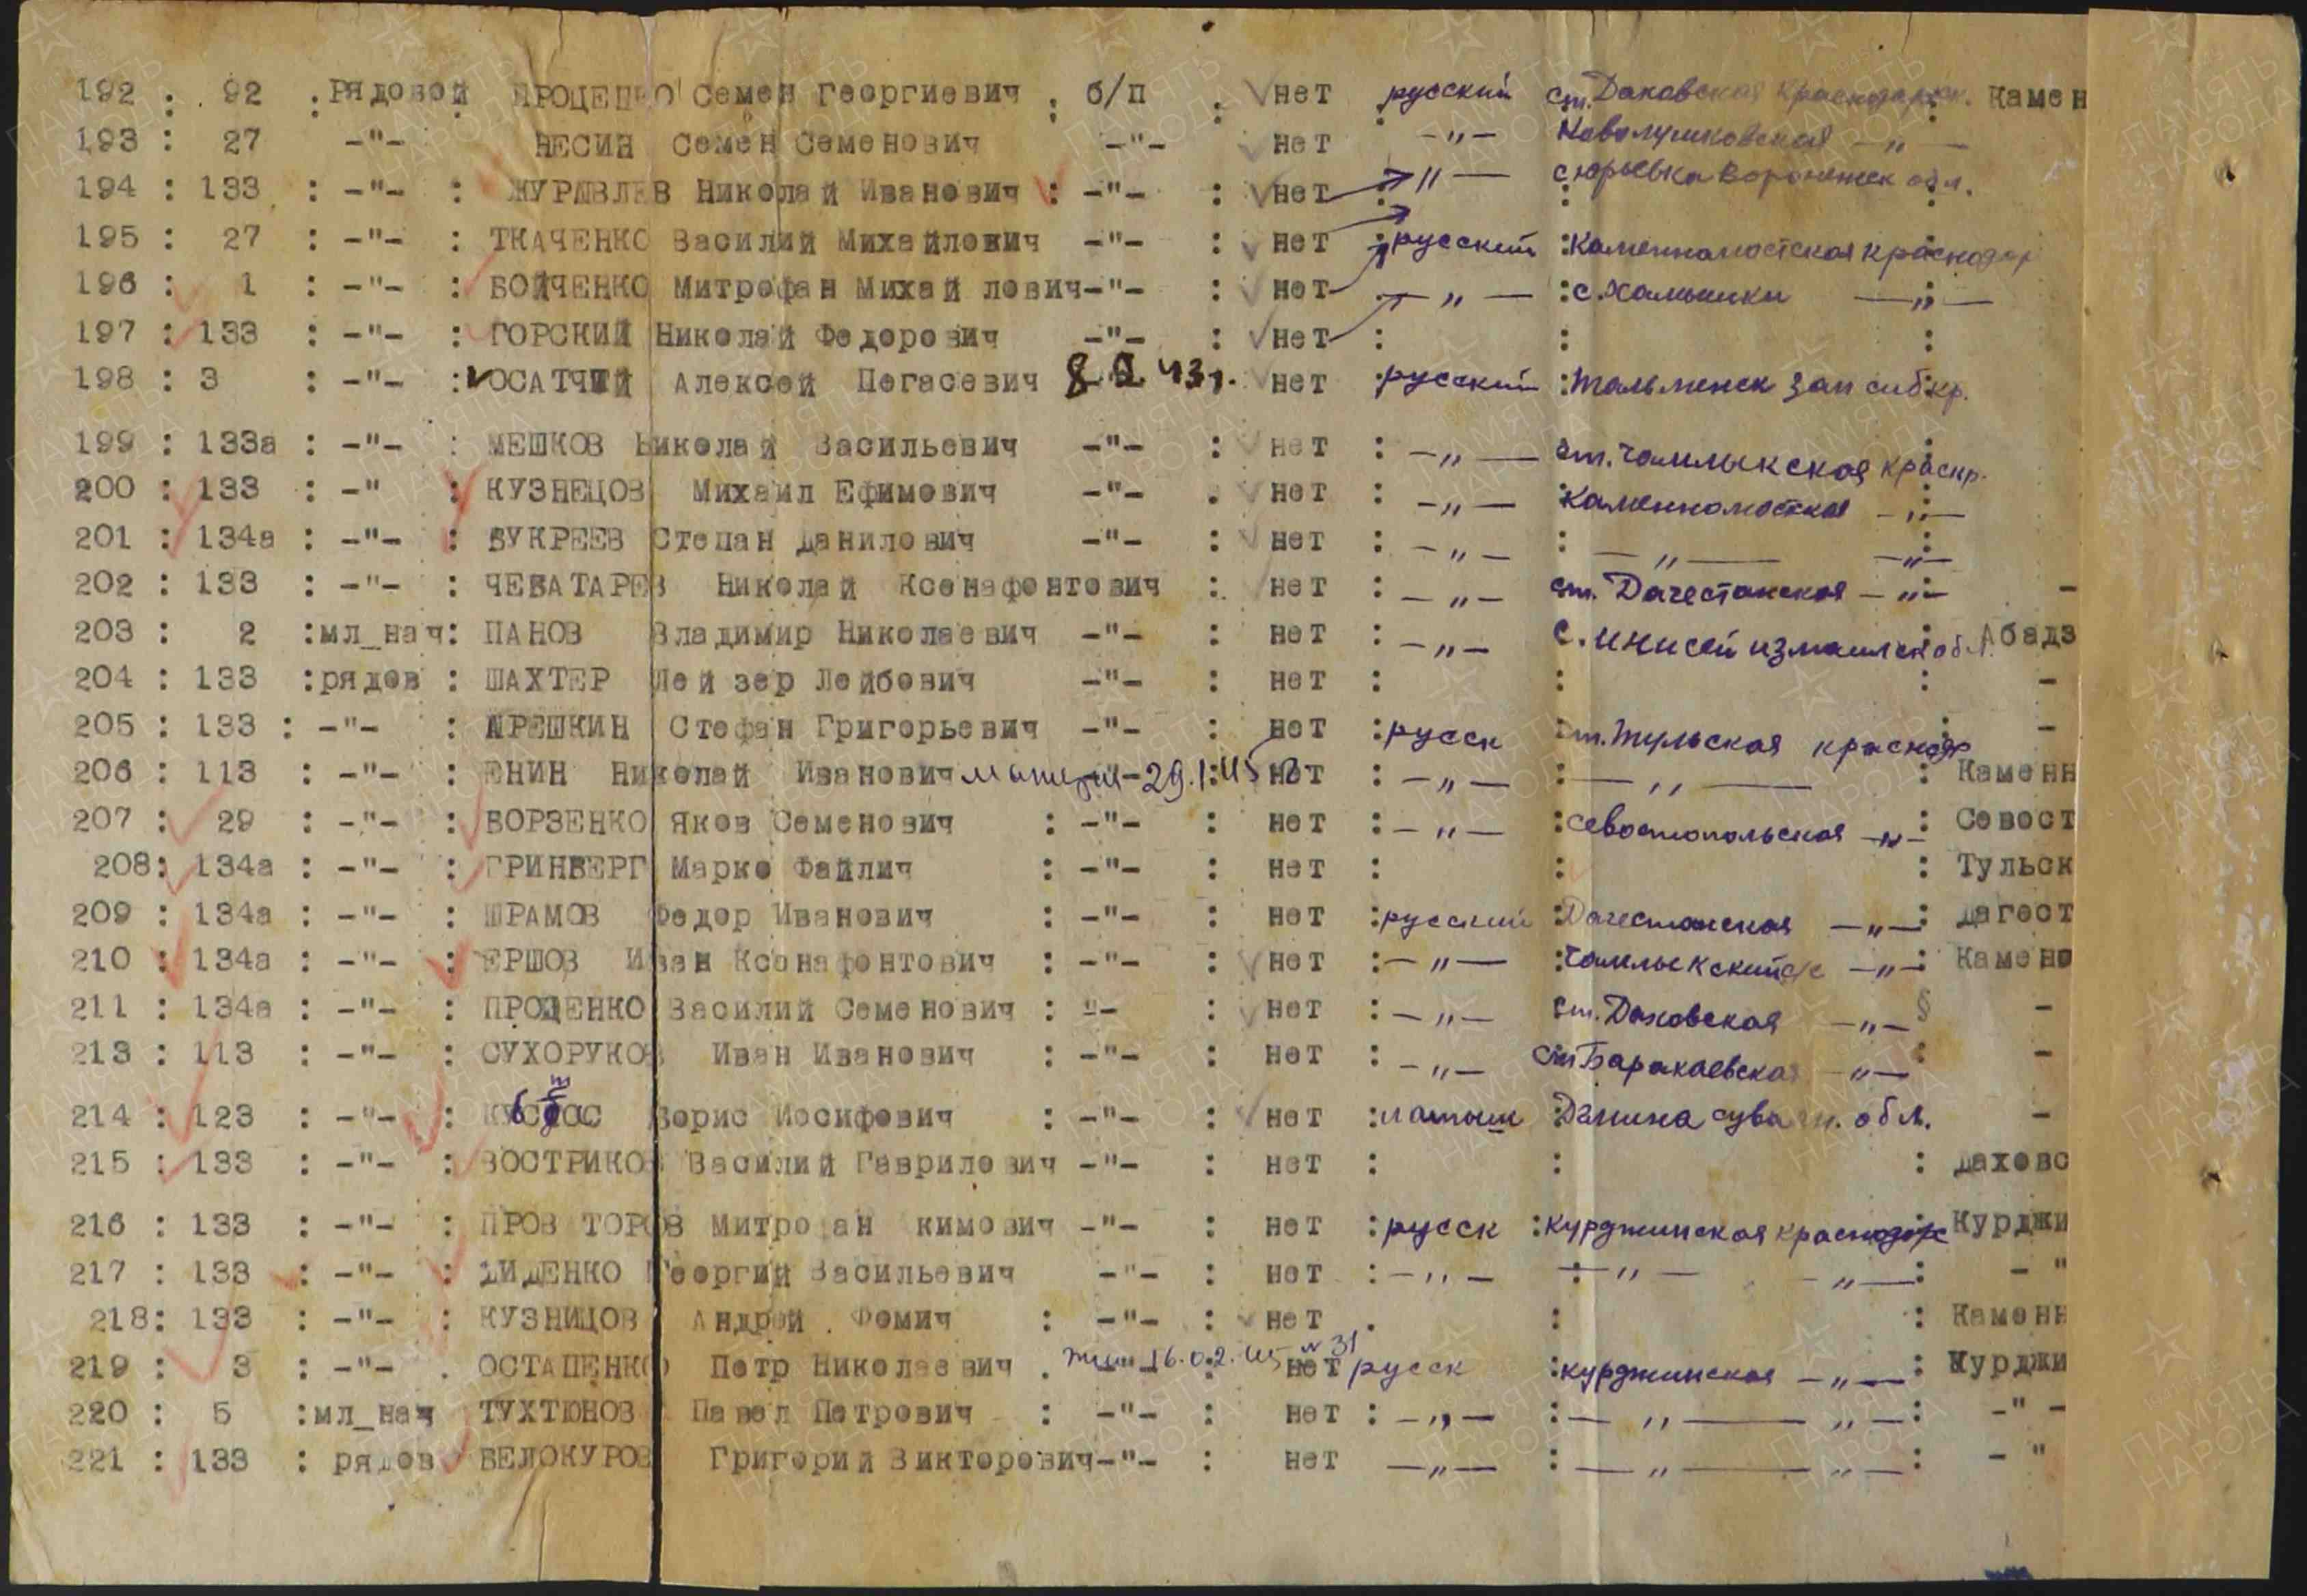 192 : 92 : Рядовой ПРОЦЕНКО Семен Георгиевич : б/п : нет русский ст. Даховская Краснодарск. Камен
193 : 27 -"- НЕСИН Семен Семенович -"- нет -"- -"-
194 : 133 : -"- : ЖУРАВЛЕВ Николай Иванович : -"- : нет -"- с Юрьевка Воронежск обл.
195 : 27 : -"- : ТКАЧЕНКО Василий Михайлович -"- : нет : русский : Каменномостская Краснодар
196 : 1 : -"- : БОЙЧЕНКО Митрофан Михайлович -"- : нет -"- : с. Хамышки -"-
197 : 133 : -"- : ГОРСКИЙ Николай Федорович -"- : нет : : :
198 : 3 : -"- : ОСАТЧИЙ Алексей Пегасевич 43г. нет русский : Тальменск Зап сибкр.
199 : 133а : -"- : МЕШКОВ Николай Васильевич -"- : нет : -"- ст. Чамлыкская краснр.
200 : 133 : -" : КУЗНЕЦОВ Михаил Ефимович -"- . нет : -"- Каменномостская -"-
201 : 134а : -"- : БУКРЕЕВ Степан Данилович -"- : нет : -"- : -"- -"-
202 : 133 : -"- : ЧЕБАТАРЕВ Николай Ксенафонтович : нет : -"- ст. Дагестанская -"- -
203 : 2 : мл_нач: ПАНОВ Владимир Николаевич -"- : нет : -"- с. Инисей измаилск обл. Абадз
204 : 133 : рядов : ШАХТЕР Лейзер Лейбович -"- : нет : : : -
205 : 133 : -"- : АРЕШКИН Стефан Григорьевич -"- : нет : русск ст. Тульская краснодр -
206 : 113 : -"- : ЕНИН Николай Иванович 29.1.45 нет : -"- : -"- : Каменн
207 : 29 : -"- : БОРЗЕНКО Яков Семенович : -"- : нет : -"- : Севостопольская -"- : Севост
208: 134а : -"- : ГРИНБЕРГ Марко Файлич : -"- : нет : : : Тульск
209 : 134а : -"- : ШРАМОВ Федор Иванович : -"- : нет : русский : Дагестанская -"- : Дагест
210 : 134а : -"- : ЕРШОВ Иван Ксенафонтович : -"- : нет : -"- : Чамлыкский с/с -"- : Камено
211 : 134а : -"- : ПРОЦЕНКО Василий Семенович : "- : нет : -"- ст. Даховская -"- -
213 : 113 : -"- : СУХОРУКОВ Иван Иванович : -"- : нет : -"- ст Баракаевская -"- : -
214 : 123 : -"- : Борис Иосифович : -"- : нет : латыш : обл. -
215 : 133 : -"- : ВОСТРИКОВ Василий Гаврилович -"- : нет : : : Даховс
216 : 133 : -"- : ПРОВ ТОРОВ Митро ан кимович -"- : нет : русск : Курджипская краснодарс Курджи
217 : 133 : -"- : ДИДЕНКО Георгий Васильевич -"- : нет : -"- : -"- -"- : - "
218: 133 : -"- : КУЗНИЦОВ Андрей . Фомич : -"- : нет . : : Каменн
219 : 3 : -"- . ОСТАПЕНКО Петр Николаевич . 16.02.45 № 31 нет русск : Курджипская -"- : Курджи
220 : 5 : мл_нач ТУХТЮНОВ Павел Петрович : -"- : нет : -"- : -"- -"- : -" -
221 : 133 : рядов БЕЛОКУРОВ Григорий Викторович -"- : нет -"- : -"- -"- : - "